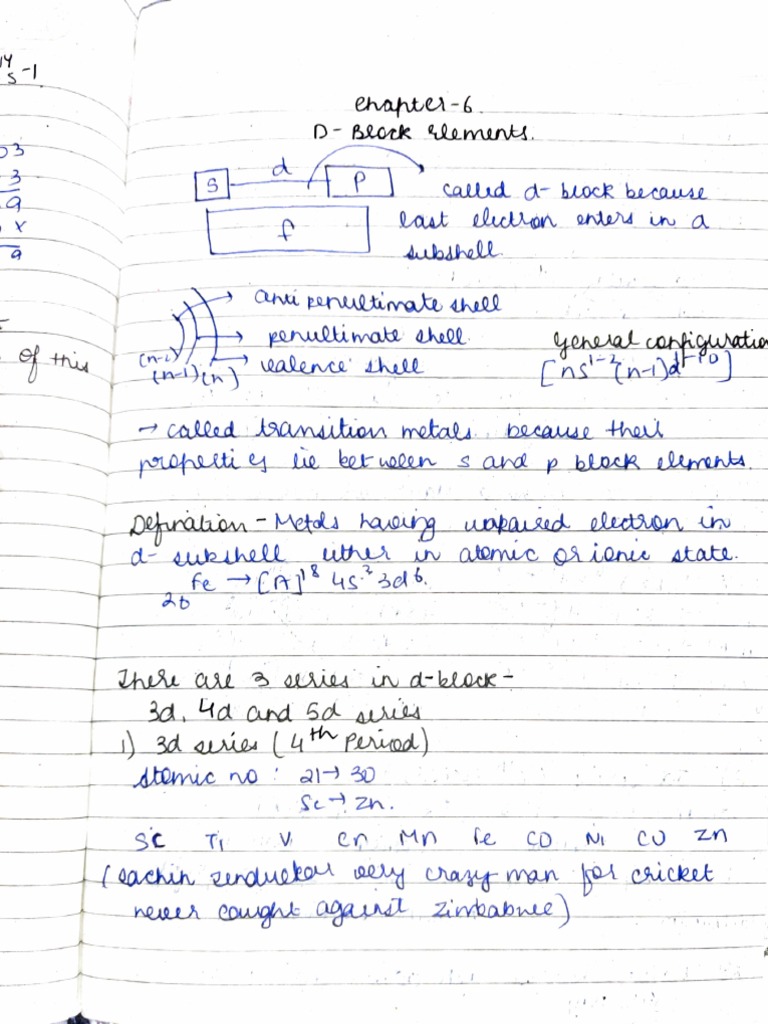 14
s-1
03
3
9
x
9
of this
Chapter-6.
D-Block Elements.
S d P called d-block because
f last electron enters in d
subshell.
anti penultimate shell
penultimate shell.
(n-2) valence shell
(n-1) (n)
General configuration
[ns¹⁻² (n-1)d¹⁻¹⁰]
→ called transition metals because their
properties lie between s and p block elements.
Defination - Metals having unpaired electron in
d- subshell either in atomic or ionic state.
Fe → [A]¹⁸ 4s² 3d⁶.
26
There are 3 series in d-block -
3d, 4d and 5d series
1) 3d series (4th Period)
Atomic no : 21 → 30
Sc → Zn.
SC Ti V Cr Mn Fe CO Ni CU Zn
(sachin tendulkar very crazy man for cricket
never caught against zimbabwe)